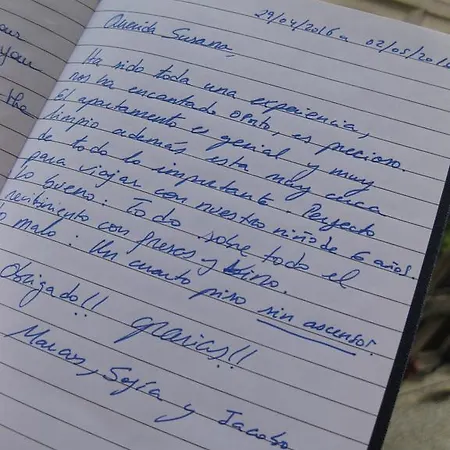 your
you
the
29/04/2016 a 02/05/2016
Querida Susana,
Ha sido toda una experiencia,
nos ha encantado Oporto, es precioso.
El apartamento es genial y muy
limpio además, esta muy cerca
de todo lo importante. Perfecto
para viajar con nuestro niño de 6 años.
lo bueno: Todo sobre todo el
recibimiento con fresas y vino.
lo malo: Un cuarto piso sin ascensor.
Obrigado!! gracias!!
Marcos, Sofía y Jacobo